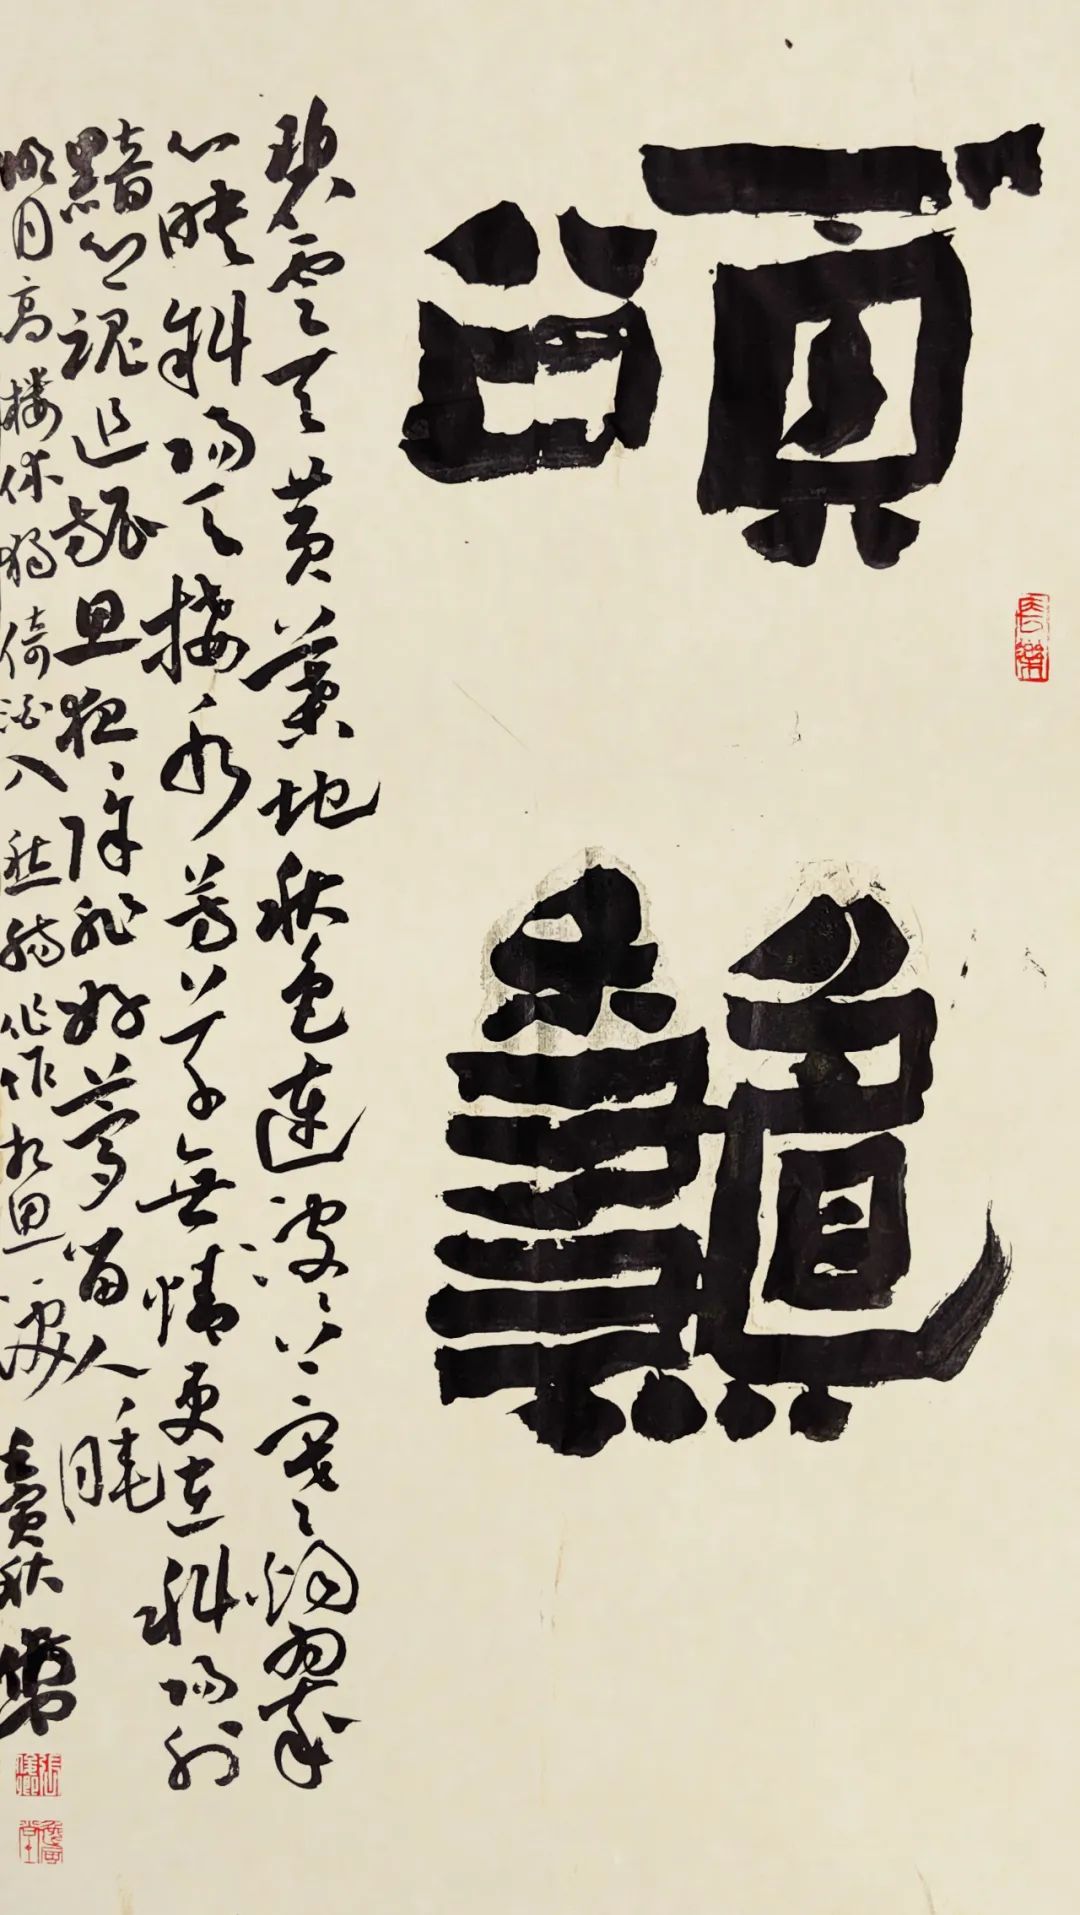 長樂
碧雲天黃葉地秋色連波々上寒烟翠
山映斜陽天接水芳草無情更在斜陽外
黯鄉魂追旅思夜々除非好夢留人睡
明月高樓休獨倚酒入愁腸化作相思淚 壬寅秋